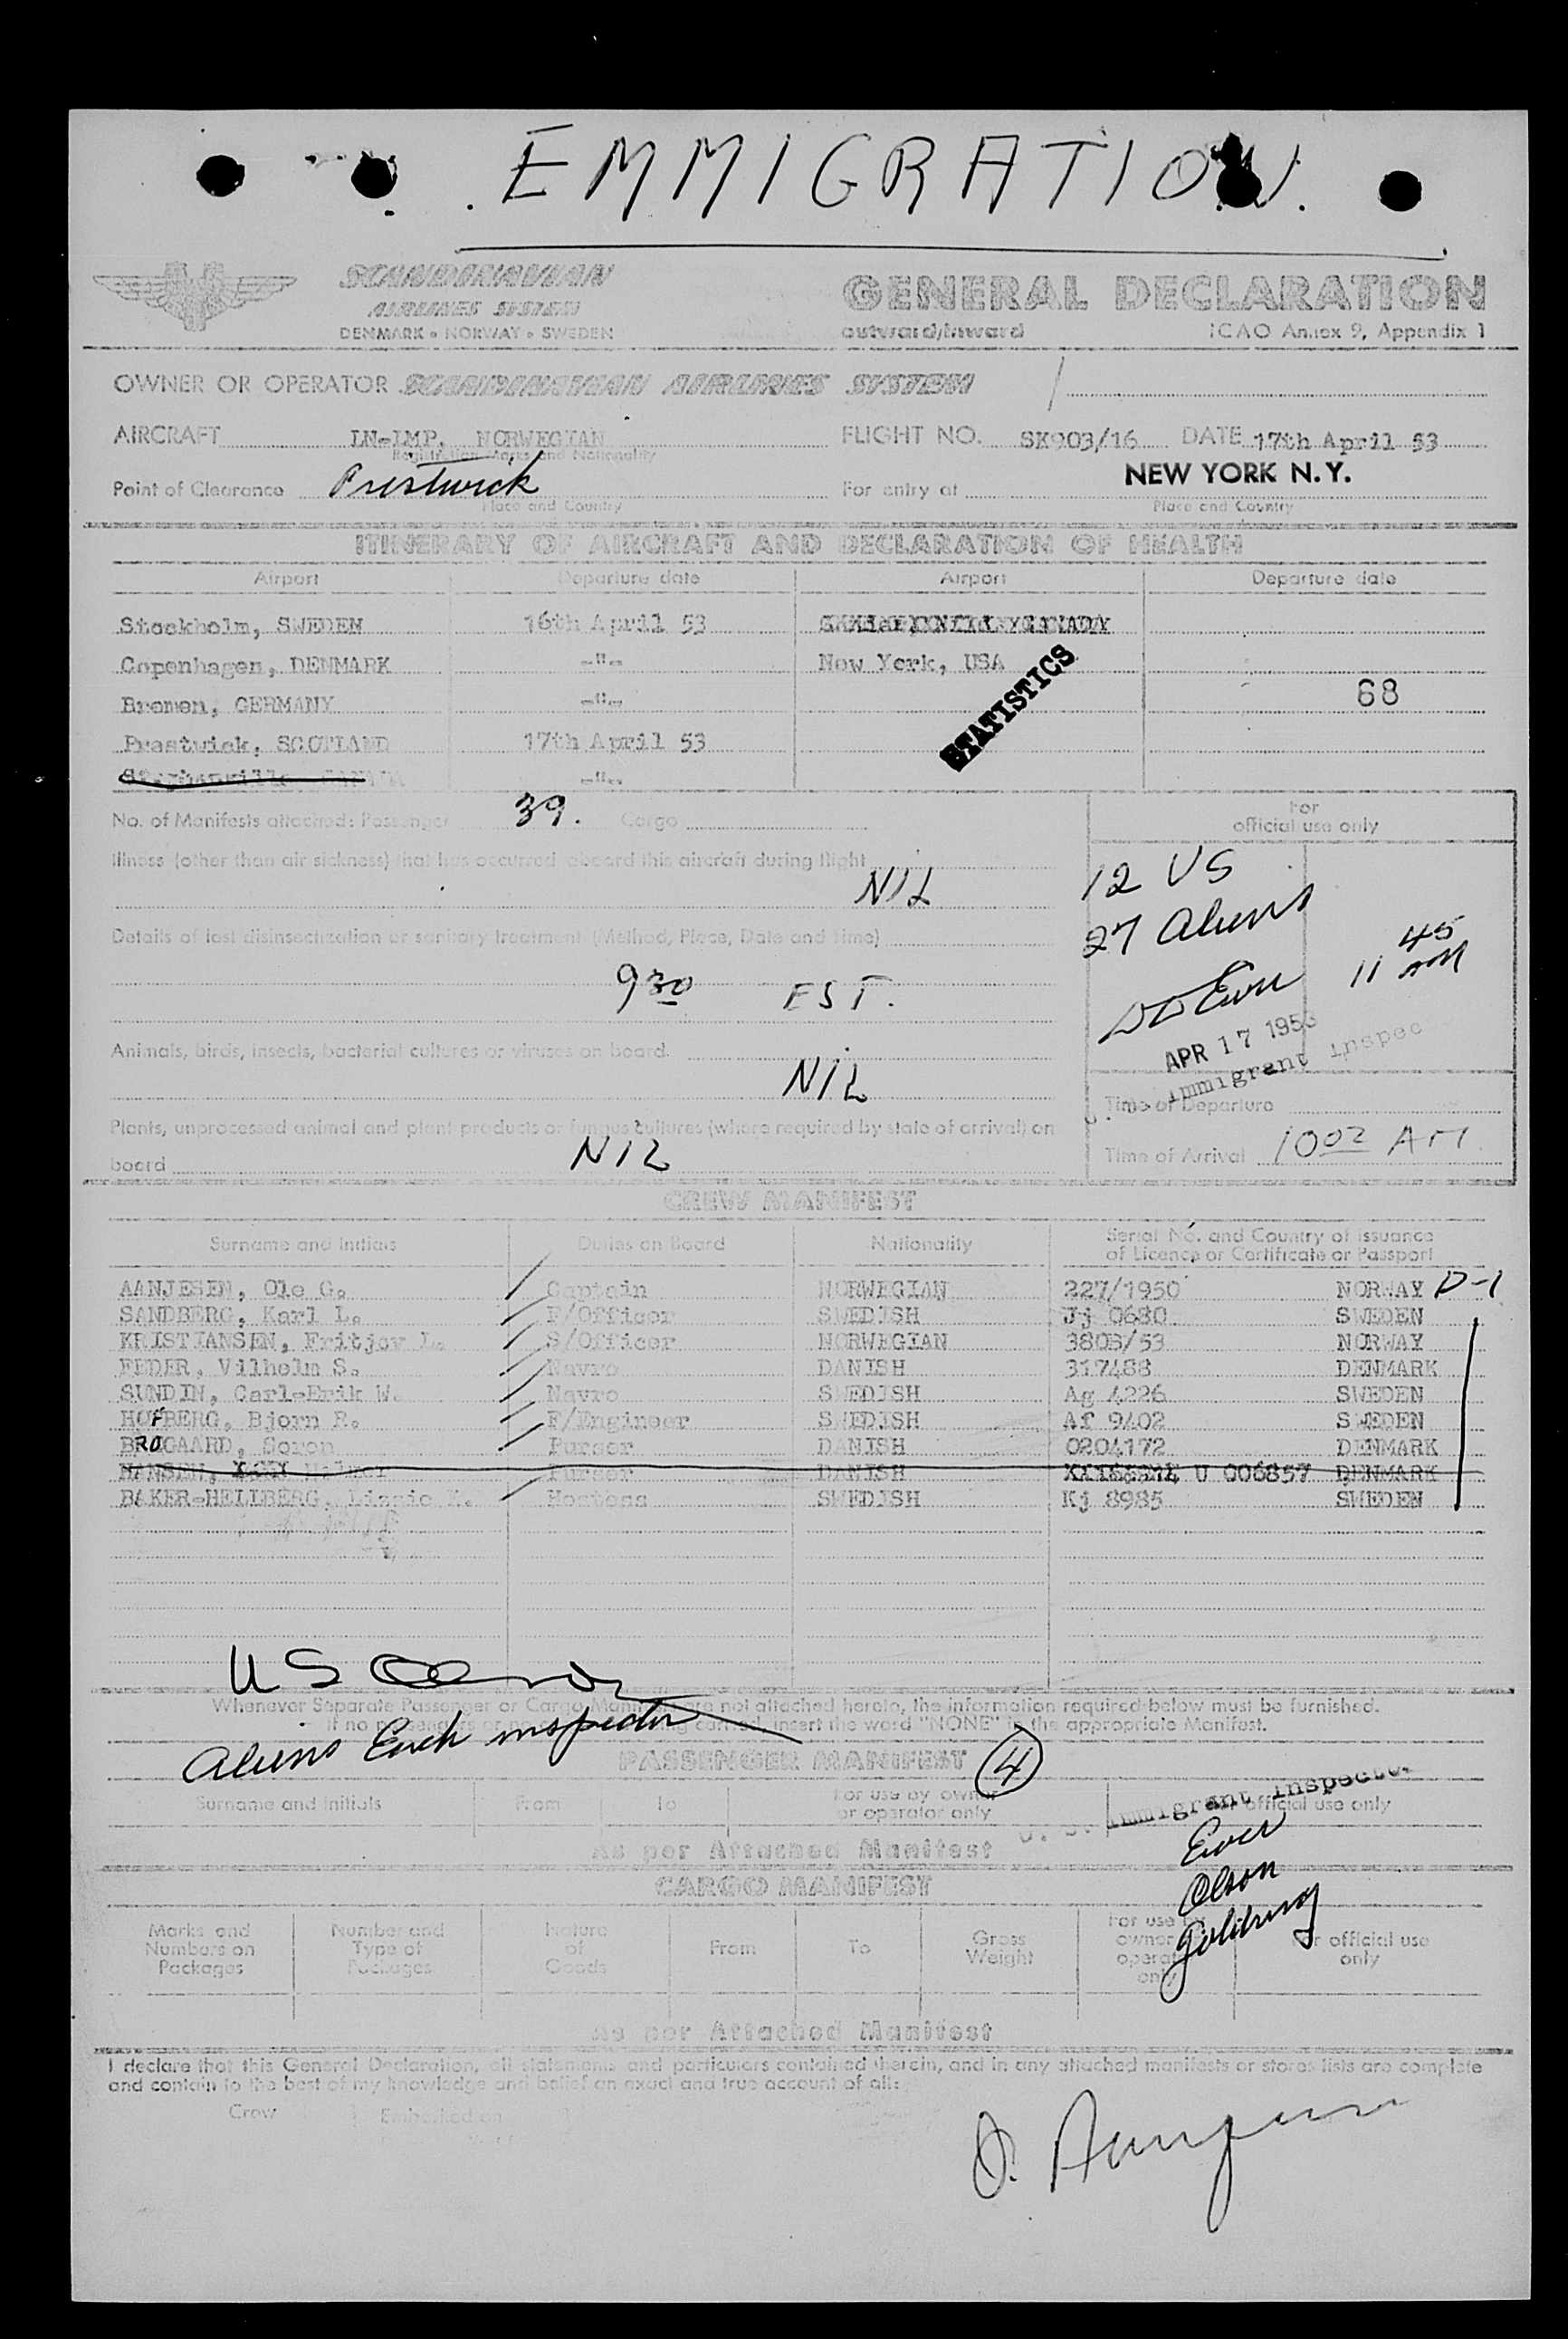 EMMIGRATION.
SCANDINAVIAN
AIRLINES SYSTEM
DENMARK • NORWAY • SWEDEN
GENERAL DECLARATION
outward/inward
ICAO Annex 9, Appendix 1
OWNER OR OPERATOR SCANDINAVIAN AIRLINES SYSTEM
AIRCRAFT LN-LMP. NORWEGIAN FLIGHT NO. SK903/16 DATE 17th April 53
Registration Marks and Nationality
Point of Clearance Prestwick For entry at NEW YORK N.Y.
Place and Country Place and Country
ITINERARY OF AIRCRAFT AND DECLARATION OF HEALTH
Airport Departure date Airport Departure date
Stockholm, SWEDEN 16th April 53
Copenhagen, DENMARK -"- New York, USA
Bremen, GERMANY -"- 68
Prestwick, SCOTLAND 17th April 53
-"-
STATISTICS
No. of Manifests attached: Passenger 39. Cargo
For
official use only
Illness (other than air sickness) that has occurred aboard this aircraft during flight
NIL
12 US
27 Aliens
Details of last disinsectization or sanitary treatment (Method, Place, Date and time)
11 45 AM
9 30 EST.
APR 17 1953
Immigrant Inspec
Animals, birds, insects, bacterial cultures or viruses on board.
NIL
Time of Departure
Plants, unprocessed animal and plant products or fungus cultures (where required by state of arrival) on
board NIL
Time of Arrival 10 02 AM
CREW MANIFEST
Surname and Initials Duties on Board Nationality Serial No. and Country of Issuance
of Licence or Certificate or Passport
AANJESEN, Ole G. Captain NORWEGIAN 227/1950 NORWAY D-1
SANDBERG, Karl L. F/Officer SWEDISH Jj 0680 SWEDEN
KRISTIANSEN, Fritjov L. S/Officer NORWEGIAN 3808/53 NORWAY
FEDER, Vilhelm S. Navro DANISH 317488 DENMARK
SUNDIN, Carl-Erik W. Navro SWEDISH Ag 4226 SWEDEN
HOFBERG, Bjorn R. F/Engineer SWEDISH Af 9402 SWEDEN
BROGAARD, Soren Purser DANISH 0204172 DENMARK
HANSEN, Helmer Purser DANISH U 006857 DENMARK
BAKER-HELLBERG, Lizzie K. Hostess SWEDISH Kj 8985 SWEDEN
US
Whenever Separate Passenger or Cargo Manifests are not attached hereto, the information required below must be furnished.
insert the word "NONE" in the appropriate Manifest.
Aliens Each inspector
PASSENGER MANIFEST
4
Surname and Initials From To For use by owner
or operator only
official use only
Immigrant Inspector
As per Attached Manifest
Ewer
Olson
CARGO MANIFEST
Marks and
Numbers on
Packages
Number and
Type of
Packages
Nature
of
Goods
From
To
Gross
Weight
For use by
owner
operator
only
For official use
only
As per Attached Manifest
I declare that this General Declaration, all statements and particulars contained therein, and in any attached manifests or stores lists are complete
and contain to the best of my knowledge and belief an exact and true account of all:
Crow Embarked on